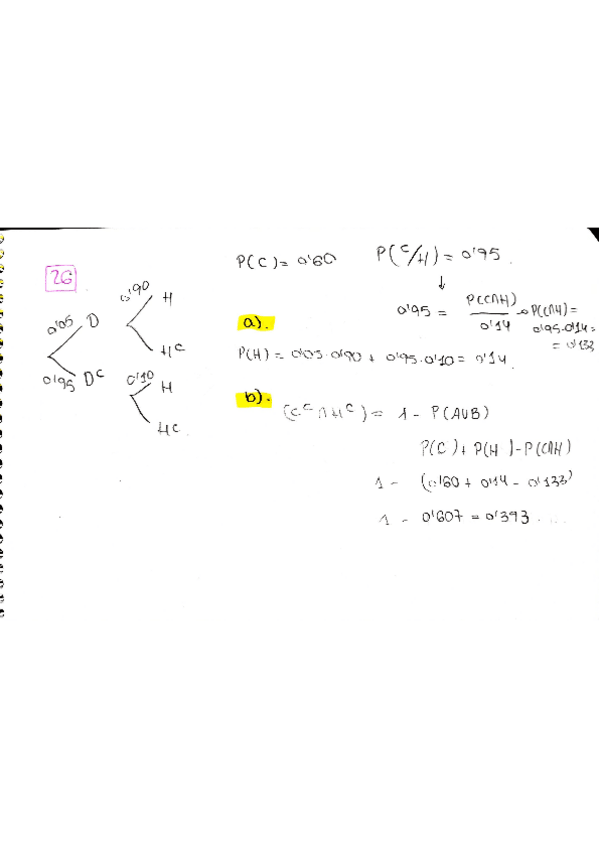 26
0'05 D 0'90 H
H^C
0'95 D^C 0'10 H
H^C
P(C) = 0'60 P(C/H) = 0'95.
↓
0'95 = P(C∩H) / 0'14 → P(C∩H) =
0'95·0'14 =
= 0'133
a).
P(H) = 0'05·0'90 + 0'95·0'10 = 0'14.
b).
(C^C ∩ H^C) = 1 - P(AUB)
P(C) + P(H) - P(C∩H)
1 - (0'60 + 0'14 - 0'133)
1 - 0'607 = 0'393 ....